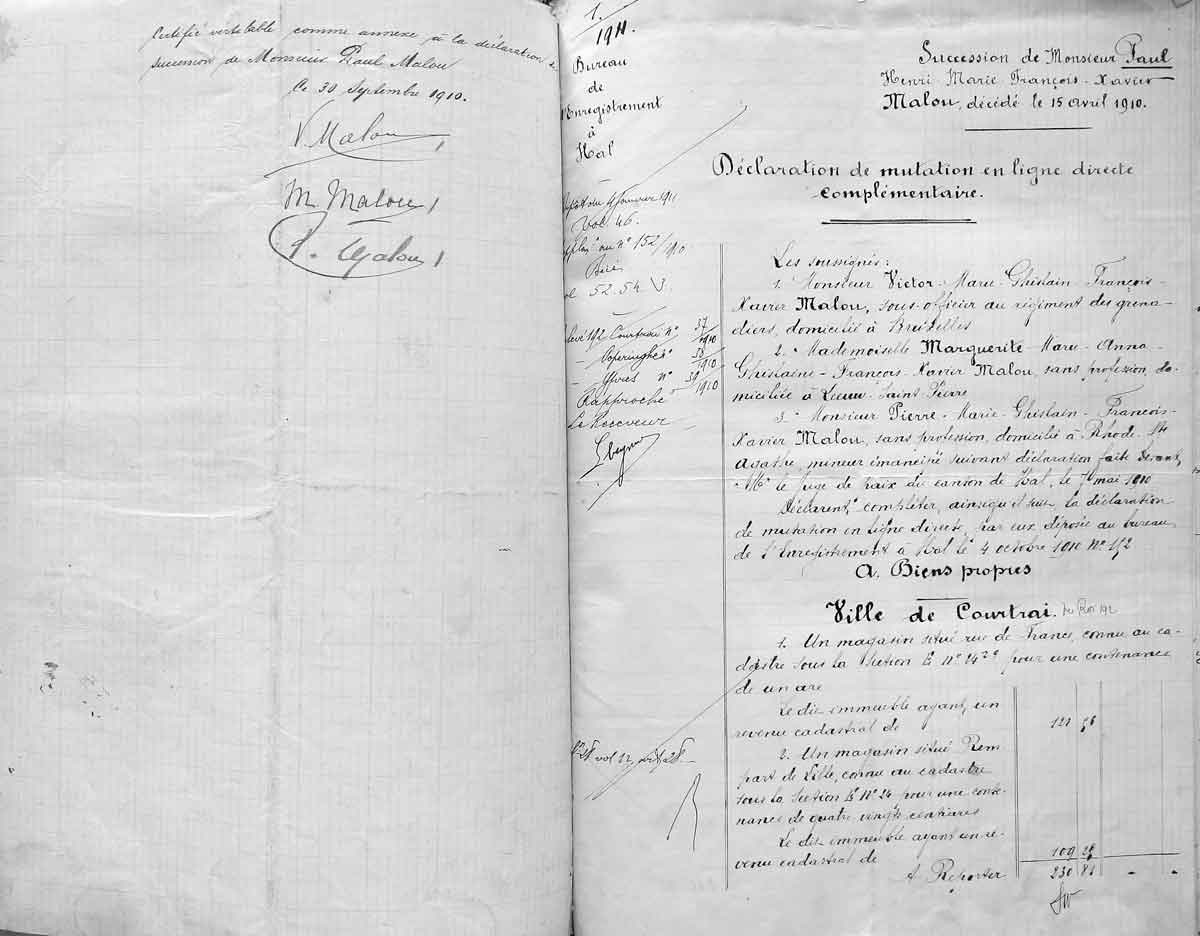 Certifié véritable comme annexe à la déclaration de
succession de Monsieur Paul Malou
Ce 30 Septembre 1910.
V Malou
M. Malou
P. Malou
1.
1911.
Bureau
de
l'Enregistrement
à
Hal
4 janvier 1911
Vol. 46.
n° 152/1910
52.54
Courtrai n° 57/1910
Poperinghe
Ypres n° 1910
Rapproché
Le Receveur
vol
Succession de Monsieur Paul
Henri-Marie François-Xavier
Malou, décédé le 15 avril 1910.
Déclaration de mutation en ligne directe
complémentaire.
Les soussignés:
1. Monsieur Victor-Marie-Ghislain-François-
Xavier Malou, sous-officier au régiment des grena-
diers, domicilié à Bruxelles
2. Mademoiselle Marguerite-Marie-Anna-
Ghislaine-François-Xavier Malou, sans profession, do-
miciliée à Leeuw-Saint-Pierre
3. Monsieur Pierre-Marie-Ghislain-François-
Xavier Malou, sans profession, domicilié à Rhode-Ste
Agathe, mineur émancipé suivant déclaration faite devant
Mr le Juge de Paix du canton de Hal, le 7 mai 1910
Déclarent compléter, ainsi qu'il suit la déclaration
de mutation en ligne directe, par eux déposée au bureau
de l'Enregistrement à Hal le 4 octobre 1910 N° 152
A. Biens propres
Ville de Courtrai.
1. Un magasin situé rue de France, connu au ca-
dastre sous la section E N° 24 pour une contenance
de un are
Le dit immeuble ayant un
revenu cadastral de 121 56
2. Un magasin situé Rem
part de Lille, connu au cadastre
sous la section E N° 24 pour une conte-
nance de quatre vingts centiares
Le dit immeuble ayant un re-
venu cadastral de 109 25
A Reporter 230 81